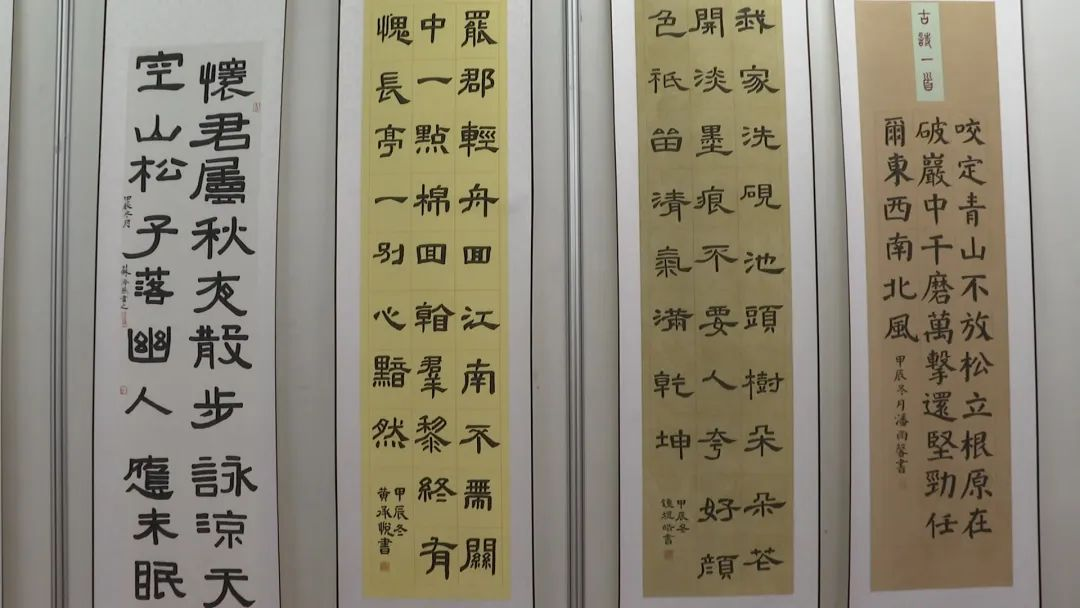 古詩一首
咬定青山不放松立根原在
破巖中千磨萬擊還堅勁任
爾東西南北風
甲辰冬月潘雨馨書
我家洗硯池頭樹朵朵花
開淡墨痕不要人夸好顏
色祗留清氣滿乾坤
甲辰冬
書
罷郡輕舟回江南不帶關
中一點棉回翰羣黎終有
愧長亭一別心黯然
甲辰冬
黄承悅書
懷君屬秋夜散步詠涼天
空山松子落幽人應未眠
甲辰冬月
書之